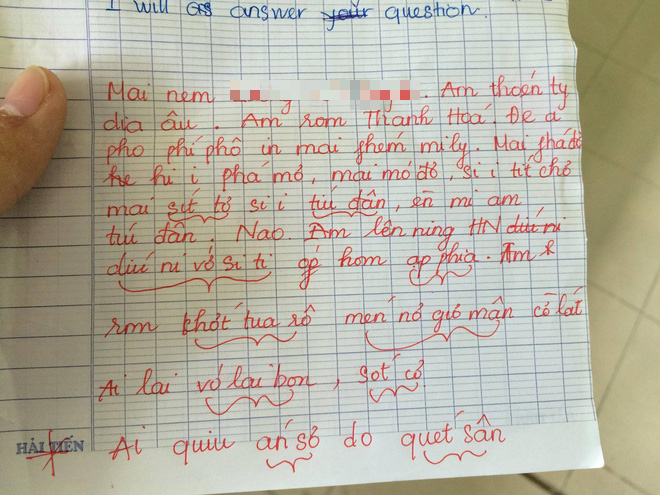 I will answer your question.
Mai nem . Am thoen ty
dia âu . Am rom Thanh Hoá. De a
pho phí phô in mai phém mily. Mai phá dờ
hi i phá mơ, mai mó đờ, si i tít chờ
mai sít tơ si i tiú đân, èn mi am
tiú đân. Nao. Am lên ning HN diú ni
diú ni vơ si ti ọp hom ạp phia. Am
rom khót tua rô men nơ giờ mân cô lất
Ai lai vó lây bon, sót cơ
HẢI TIẾN
Ai quiu án sờ do quét sân